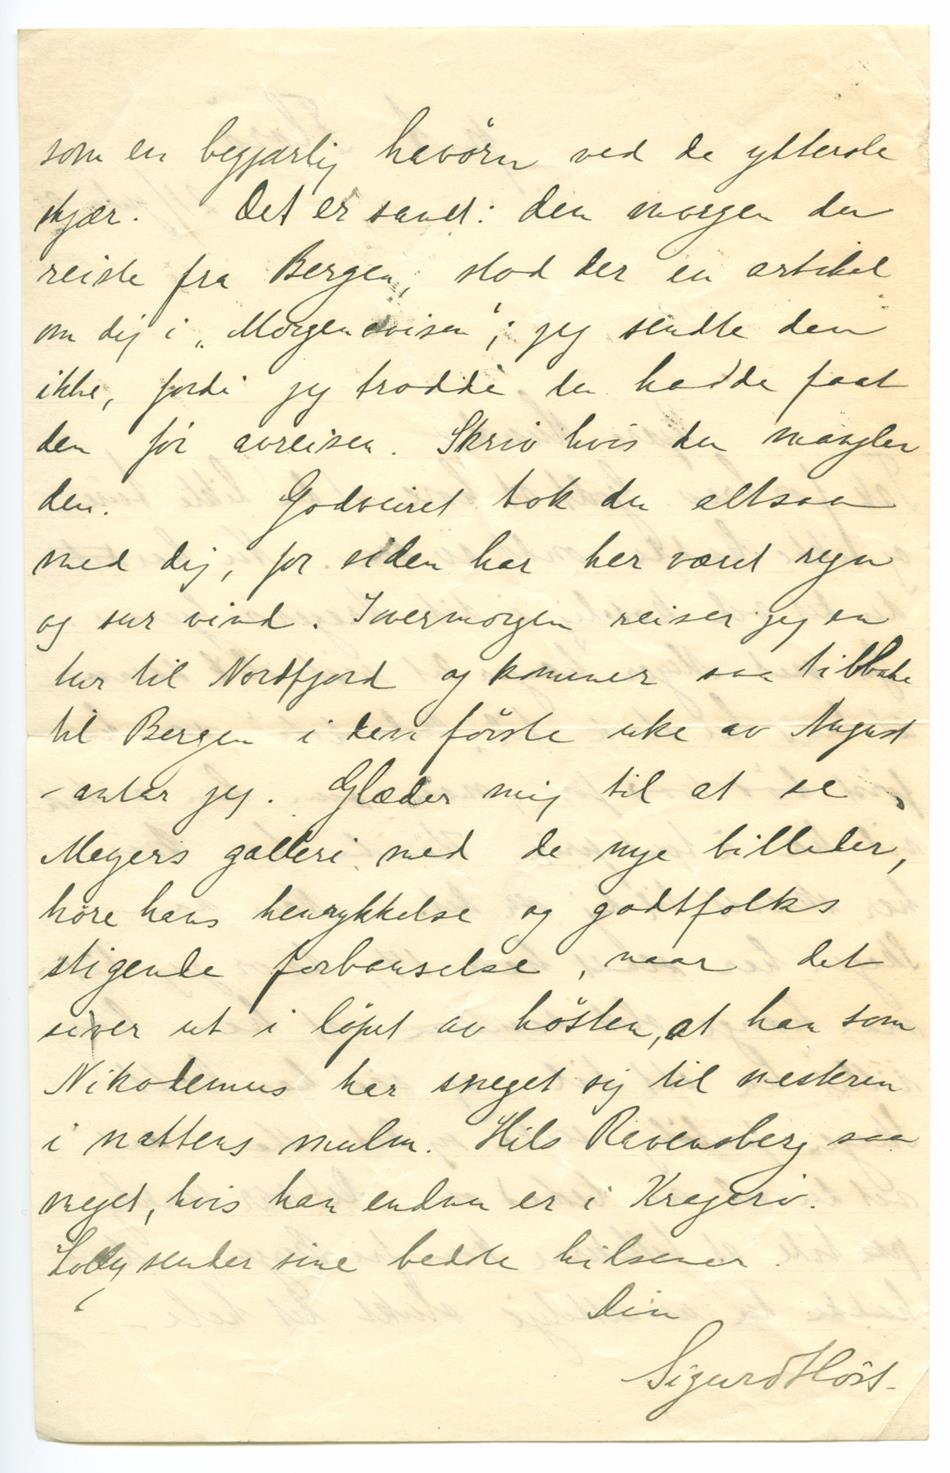 som en begjærlig havörn ved de ytterste
skjær. Det er sandt: den morgen du
reiste fra Bergen, stod der en artikel
om dig i „Morgenavisen“; jeg sendte den
ikke, fordi jeg trodde du hadde faat
den för avreisen. Skriv hvis du mangler
den. Godveiret tok du altsaa
med dig, for siden har her været regn
og sur vind. Ivermorgen reiser jeg en
tur til Nordfjord og kommer saa tilbake
til Bergen i den förste uke av August
- antar jeg. Glæder mig til at se
Meyers galleri med de nye billeder,
höre hans henrykkelse og godtfolks
stigende forbauselse, naar det
siver ut i löpet av hösten, at han som
Nikodemus har sneget sig til mesteren
i nattens mulm. Hils Ravensberg saa
meget, hvis han endnu er i Kragerö.
Lolly sender sine bedste hilsener.
Din
Sigurd Höst.